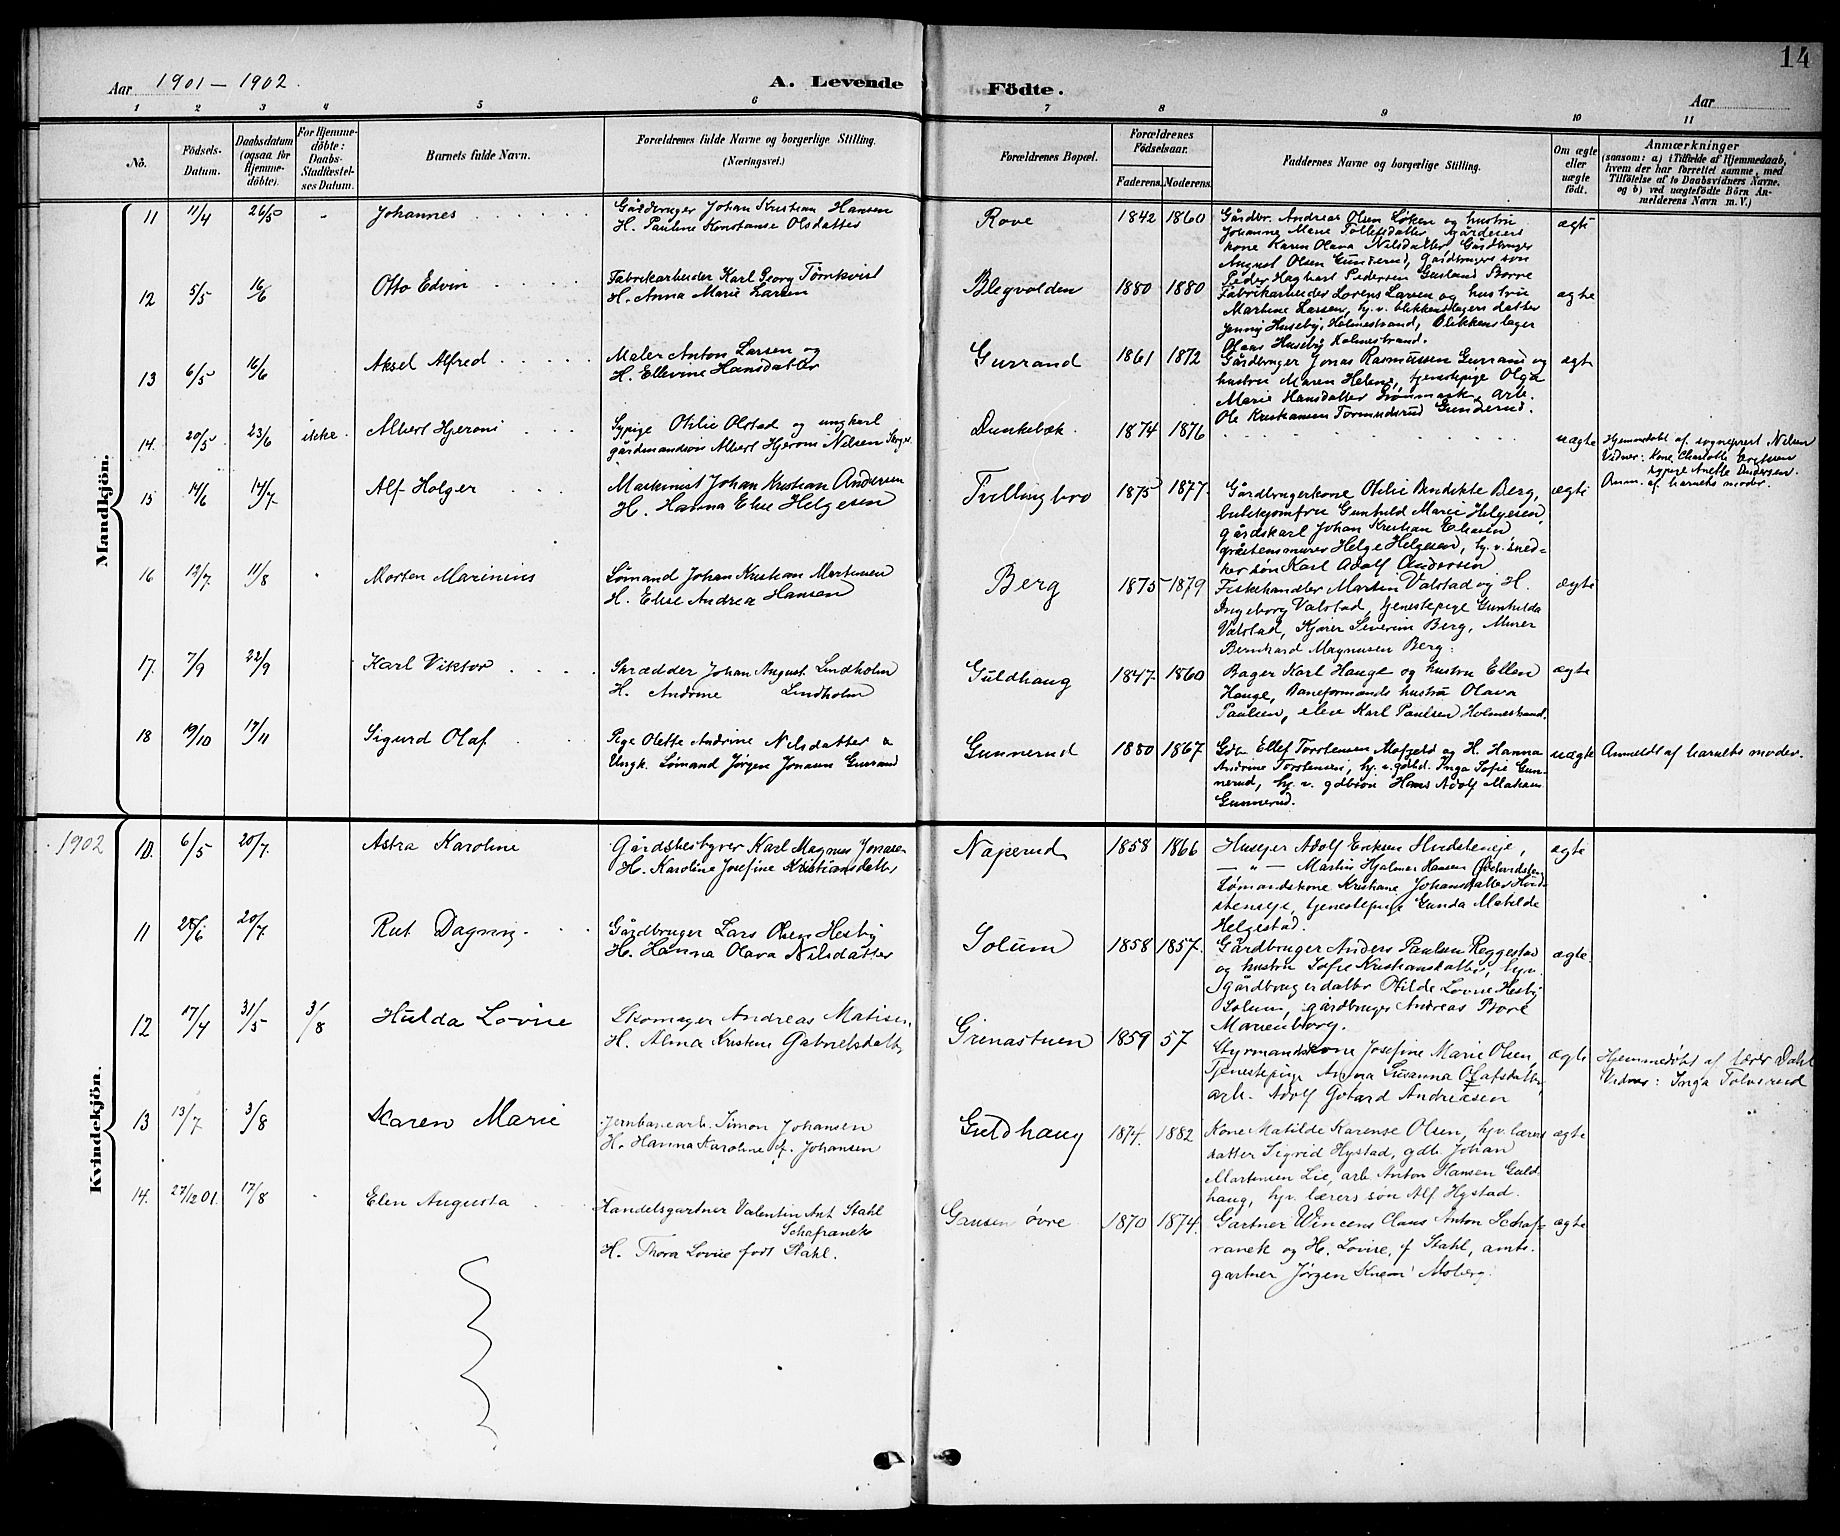 14
Aar 1901 – 1902.
A. Levende Födte.
Aar
1 2 3 4 5 6 7 8 9 10 11
No.
Födsels-Datum.
Daabsdatum (ogsaa for Hjemme-döbte).
For Hjemme-döbte: Daabs-Stadfæstel-ses Datum.
Barnets fulde Navn.
Forældrenes fulde Navne og borgerlige Stilling. (Næringsvei.)
Forældrenes Bopæl.
Forældrenes Födselsaar.
Faderens. Moderens.
Faddernes Navne og borgerlige Stilling.
Om ægte eller uægte födt.
Anmærkninger
(saasom: a) i Tilfælde af Hjemmedaab, hvem der har forrettet samme, med Tilföielse af to Daabsvidners Navne, og b) ved uægtefödte Börn An-melderens Navn m. V.)
Mandkjön.
11 11/4 26/5 - Johannes
Gårdbruger Johan Kristian Hansen
H. Pauline Konstanse Olsdatter
Rove 1842 1860
Gårdbr. Andreas Olsen Løken og hustru
Johanne Marie Tollefsdatter, gårdeiers
kone Karen Olava Nilsdatter, Gårdbruger
August Olsen Gunderud, gårdbrugers søn
Peder Hagbart Pedersen Gusland Borre
ægte
12 5/5 16/6 Otto Edvin
Fabrikarbeider Karl Georg Törnkvist
H. Anna Marie Larsen
Blegvolden 1880 1880
Fabrikarbeider Lorens Larsen og hustru
Martine Larsen, hj. v. blikkenslagers datter
Jenny Huseby, Holmestrand, Blikkenslager
Olaus Huseby Holmestrand.
ægte
13 6/5 16/6 Aksel Alfred
Maler Anton Larsen og
H. Ellevine Hansdatter
Gurrand 1861 1872
Gårdbruger Jonas Rasmussen Gurrand og
hustru Maren Heline, tjenestepige Olga
Marie Hansdatter, arb.
Ole Kristiansen Gunderud.
ægte
14. 20/5. 23/6 ikke. Albert Hjeroni
Sypige Otilie Olstad og ungkarl
gårdmandsøn Albert Hjeroni Nilsen
Dunkebæk. 1874 1876
uægte
Hjemmedøbt af sogneprest Nilsen
Vidner: Kone Charlotte Eriksen
sypige Anette Andersen.
Anm. af barnets moder.
15 14/6 14/7 Alf Holger
Maskinist Johan Kristian Andersen
H. Hanna Elise Helgesen
Tvillingbro 1875 1877.
Gårdbrugerkone Otilie Bendikte Berg,
butikjomfru Gunhild Marie Helgesen,
gårdskarl Johan Kristian Eliasen
gråstensmurer Helge Helgesen, hj. v. sned-
ker søn Karl Adolf Andersen
ægte
16 12/7 11/8 Morten Marinius
Sømand Johan Kristian Martinsen
H. Elise Andrea Hansen
Berg 1875 1879
Fiskehandler Martin Valstad og H.
Ingeborg Valstad, tjenestepige Gunhilda
Valstad, Kjører Severin Berg, Murer
Bernhard Magnusen Berg.
ægte
17. 7/9 22/9 Karl Viktor
Skrædder Johan August Lindholm
H. Andrine Lindholm
Guldhaug 1847. 1860
Bager Karl Hauge og hustru Ellen
Hauge, Baneformands hustru Olava
Paulsen, elev Karl Paulsen Holmestrand.
ægte
18 19/10 17/11 Sigurd Olaf
Pige Olette Andrine Nilsdatter &
Ungk. Sømand Jørgen Jonasen Gurrand
Gunnerud 1880 1867
Gdb. Ellef Torstensen Mofjeld og H. Hanna
Andrine Torstensen, hj. v. gdbd. Inga Sofie Gun-
nerud, hj. v. gdbsøn Hans Adolf
Gunnerud.
uægte
Anmeldt af barnets moder.
Kvindekjön.
1902
10. 6/5 20/7. Astra Karoline
Gårdsbestyrer Karl Magnus Jonasen
H. Karoline Josefine Kristiansdatter
Naperud 1858 1866
Huseier Adolf Eriksen Hvidsteneje,
— „ — Martin Hjalmer Hansen
Sømandskone Kristiane Johansdatter Hvid-
steneje, tjenestepige Gunda Matilde
Helgestad.
ægte
11 28/6 20/7 Rut Dagny
Gårdbruger Lars Olsen Hesby
H. Hanna Olava Nilsdatter
Solum 1858 1857.
Gårdbruger Anders Paulsen Reggestad
og hustru Sofie Kristiansdatter, hj. v.
gårdbrugerdatter Otilde Lovise Hesby
Solum, gårdbruger Andreas Bore
Marienborg.
ægte.
12 17/4 31/5 3/8 Hulda Lovise
Skomager Andreas Matisen
H. Alma Kristine Gabrielsdatter
Grinastuen 1859 57
Styrmandskone Josefine Marie Olsen,
Tjenestepige Anna Susanna Olafsdatter,
arb. Adolf Gotard Andreasen
ægte
Hjemmedøbt af lærer Dahl
Vidner: Inga Tolvsrud
13 13/7 3/8 Karen Marie
Jernbanearb. Simon Johansen
H. Hanna Karoline f. Johansen
Guldhaug 1874. 1882
Kone Matilde Karense Olsen, hjv. lærers
datter Sigrid Hystad, gdb. Johan
Martinsen Lie, arb. Anton Hansen Guld
haug, hjv. lærers søn Alf Hystad.
ægte
14. 27/12 01. 17/8 Elen Augusta
Handelsgartner Valentin Ant. Stahl
Schafranek
H. Thora Lovise født Stahl.
Gausen øvre 1870 1874.
Gartner Wincens Claus Anton Schaf-
ranek og H. Lovise, f Stahl, amts-
gartner Jørgen Moberg.
ægte